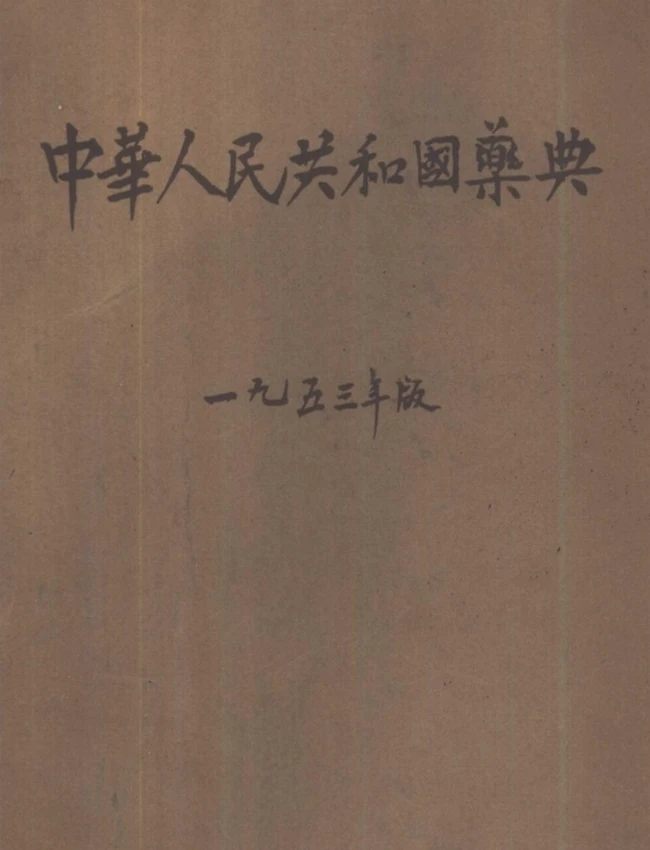 中華人民共和國藥典
一九五三年版